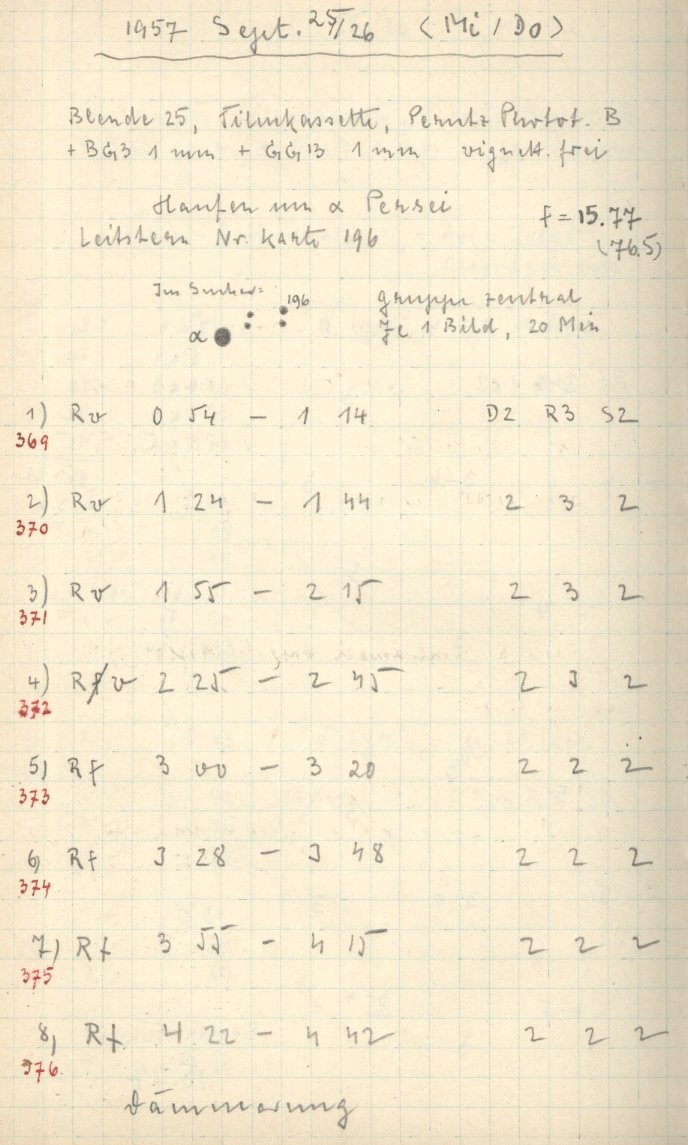 1957 Sept. 25/26 (Mi / Do)
Blende 25, Filmkassette, Perutz Phototh. B
+ BG3 1 mm + GG13 1 mm vignett. frei
Haufen um α Persei
f = 15.77
Leitstern Nr. Karte 196
(76.5)
Im Sucher:
196
α
gruppe zentral
Je 1 Bild, 20 Min
1) Rv 0 54 — 1 14 D2 R3 S2
369
2) Rv 1 24 — 1 44 2 3 2
370
3) Rv 1 55 — 2 15 2 3 2
371
4) Rv 2 25 — 2 45 2 3 2
372
5) Rf 3 00 — 3 20 2 2 2
373
6) Rf 3 28 — 3 48 2 2 2
374
7) Rf 3 55 — 4 15 2 2 2
375
8) Rf 4 22 — 4 42 2 2 2
376
Dämmerung